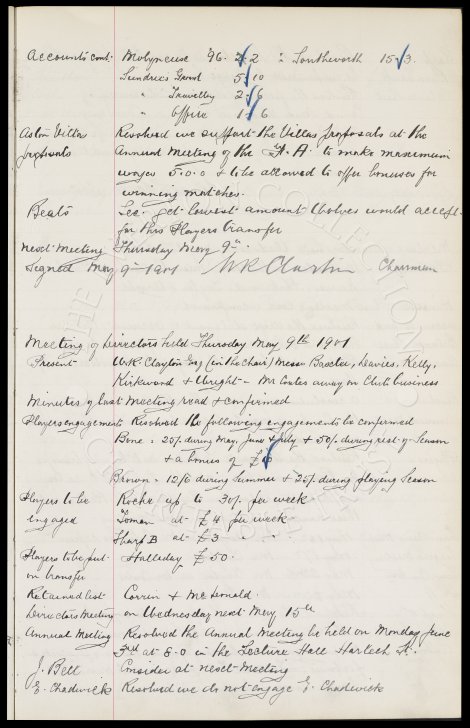 Accounts cont. Molyneux '96. 2.2 : Southworth 15.3.
Sundries Gment 5.10
" Travellng 2.6
" Office 1.6
Aston Villas Resolved we support the Villas proposals at the
proposals Annual Meeting of the F.A. to make maximum
wages 5.0.0 & to be allowed to offer bonuses for
winning matches.
Beats Sec. get lowest amount Wolves would accept
for this Players transfer
next Meeting Thursday May 9th.
Signed May 9th 1901 W R Clayton Chairman
Meeting of Directors held Thursday May 9th 1901
Present W.R. Clayton Esq (in the chair) Messrs Baxter, Davies, Kelly,
Kirkwood & Wright - Mr Coates away on Club business
Minutes of last Meeting read & confirmed
Players engagements Resolved the following engagements be confirmed
Bone = 20/- during May, June & July & 50/- during rest of Season
& a bonus of £
Brown = 12/6 during Summer & 25/- during Playing Season
Players to be Roche up to 30/- per week
engaged Toman at £4 per week
Sharp B at £3 " "
Players to be put Halladay £50.
on transfer
Retained list Corrin & McDonald.
Directors Meeting on Wednesday next May 15th
Annual Meeting Resolved the Annual Meeting be held on Monday June
3rd at 8-0 in the Lecture Hall Harlech St.
J. Bell Consider at next Meeting
E. Chadwick Resolved we do not engage E. Chadwick
THE
COLLECTION